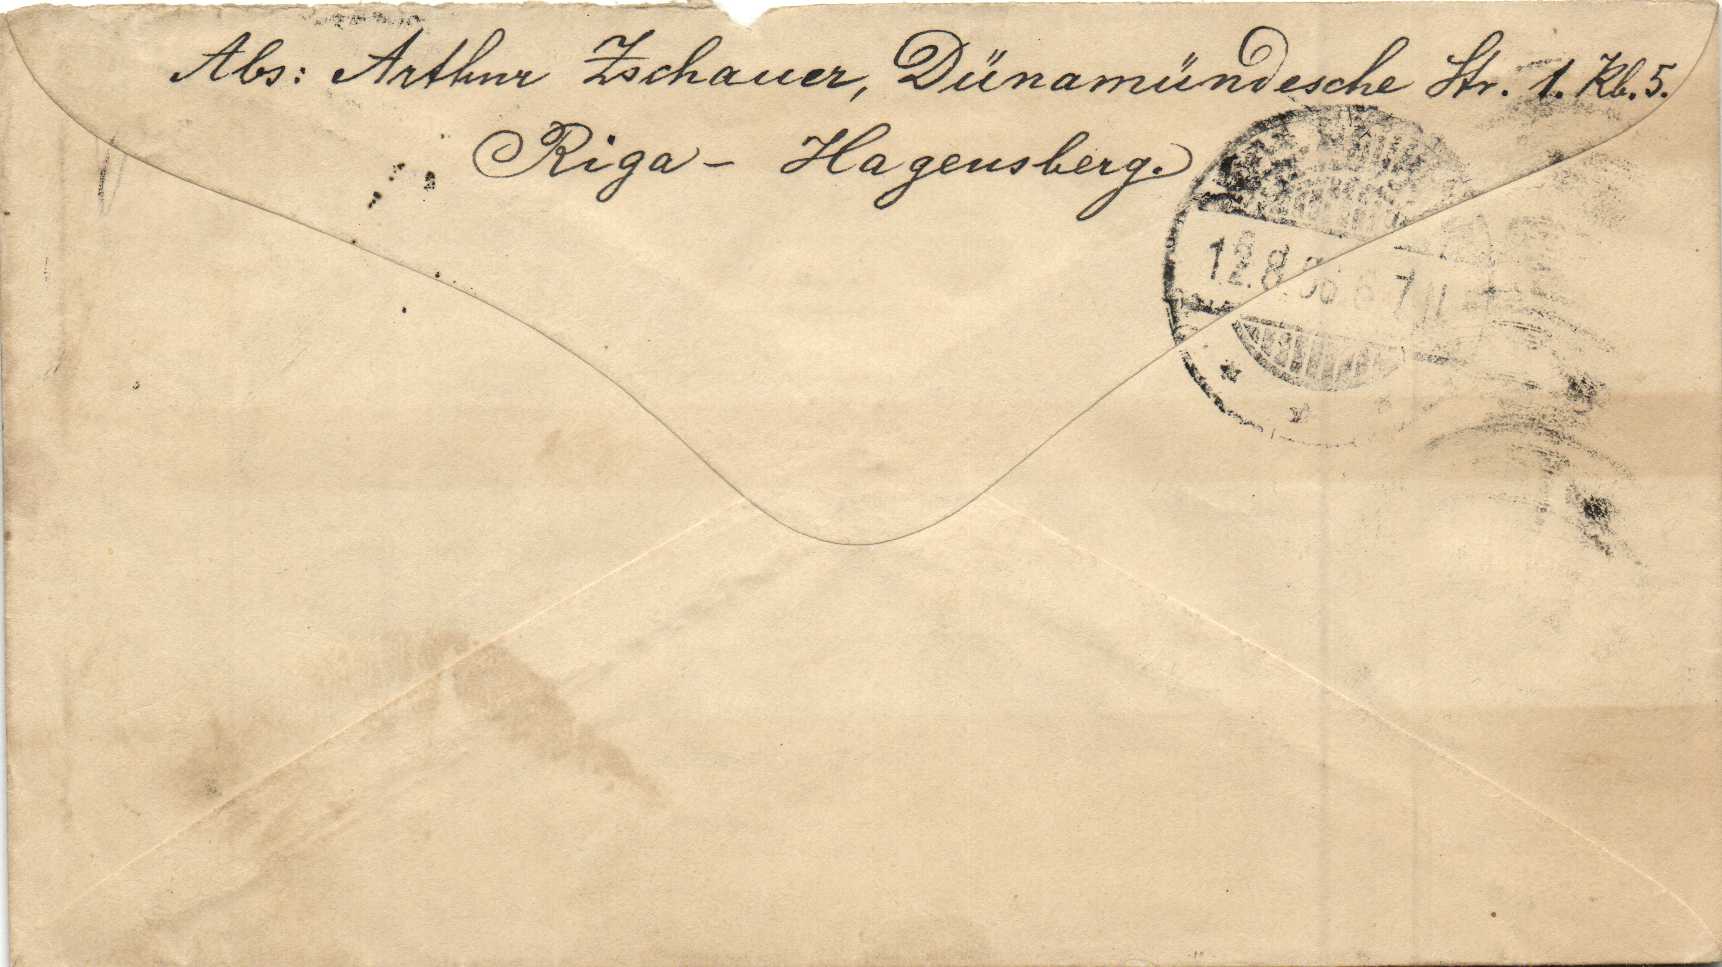 Abs: Arthur Zschauer, Dünamündesche Str. 1. Kb. 5.
Riga - Hagensberg.
12.8.06 6-7 N